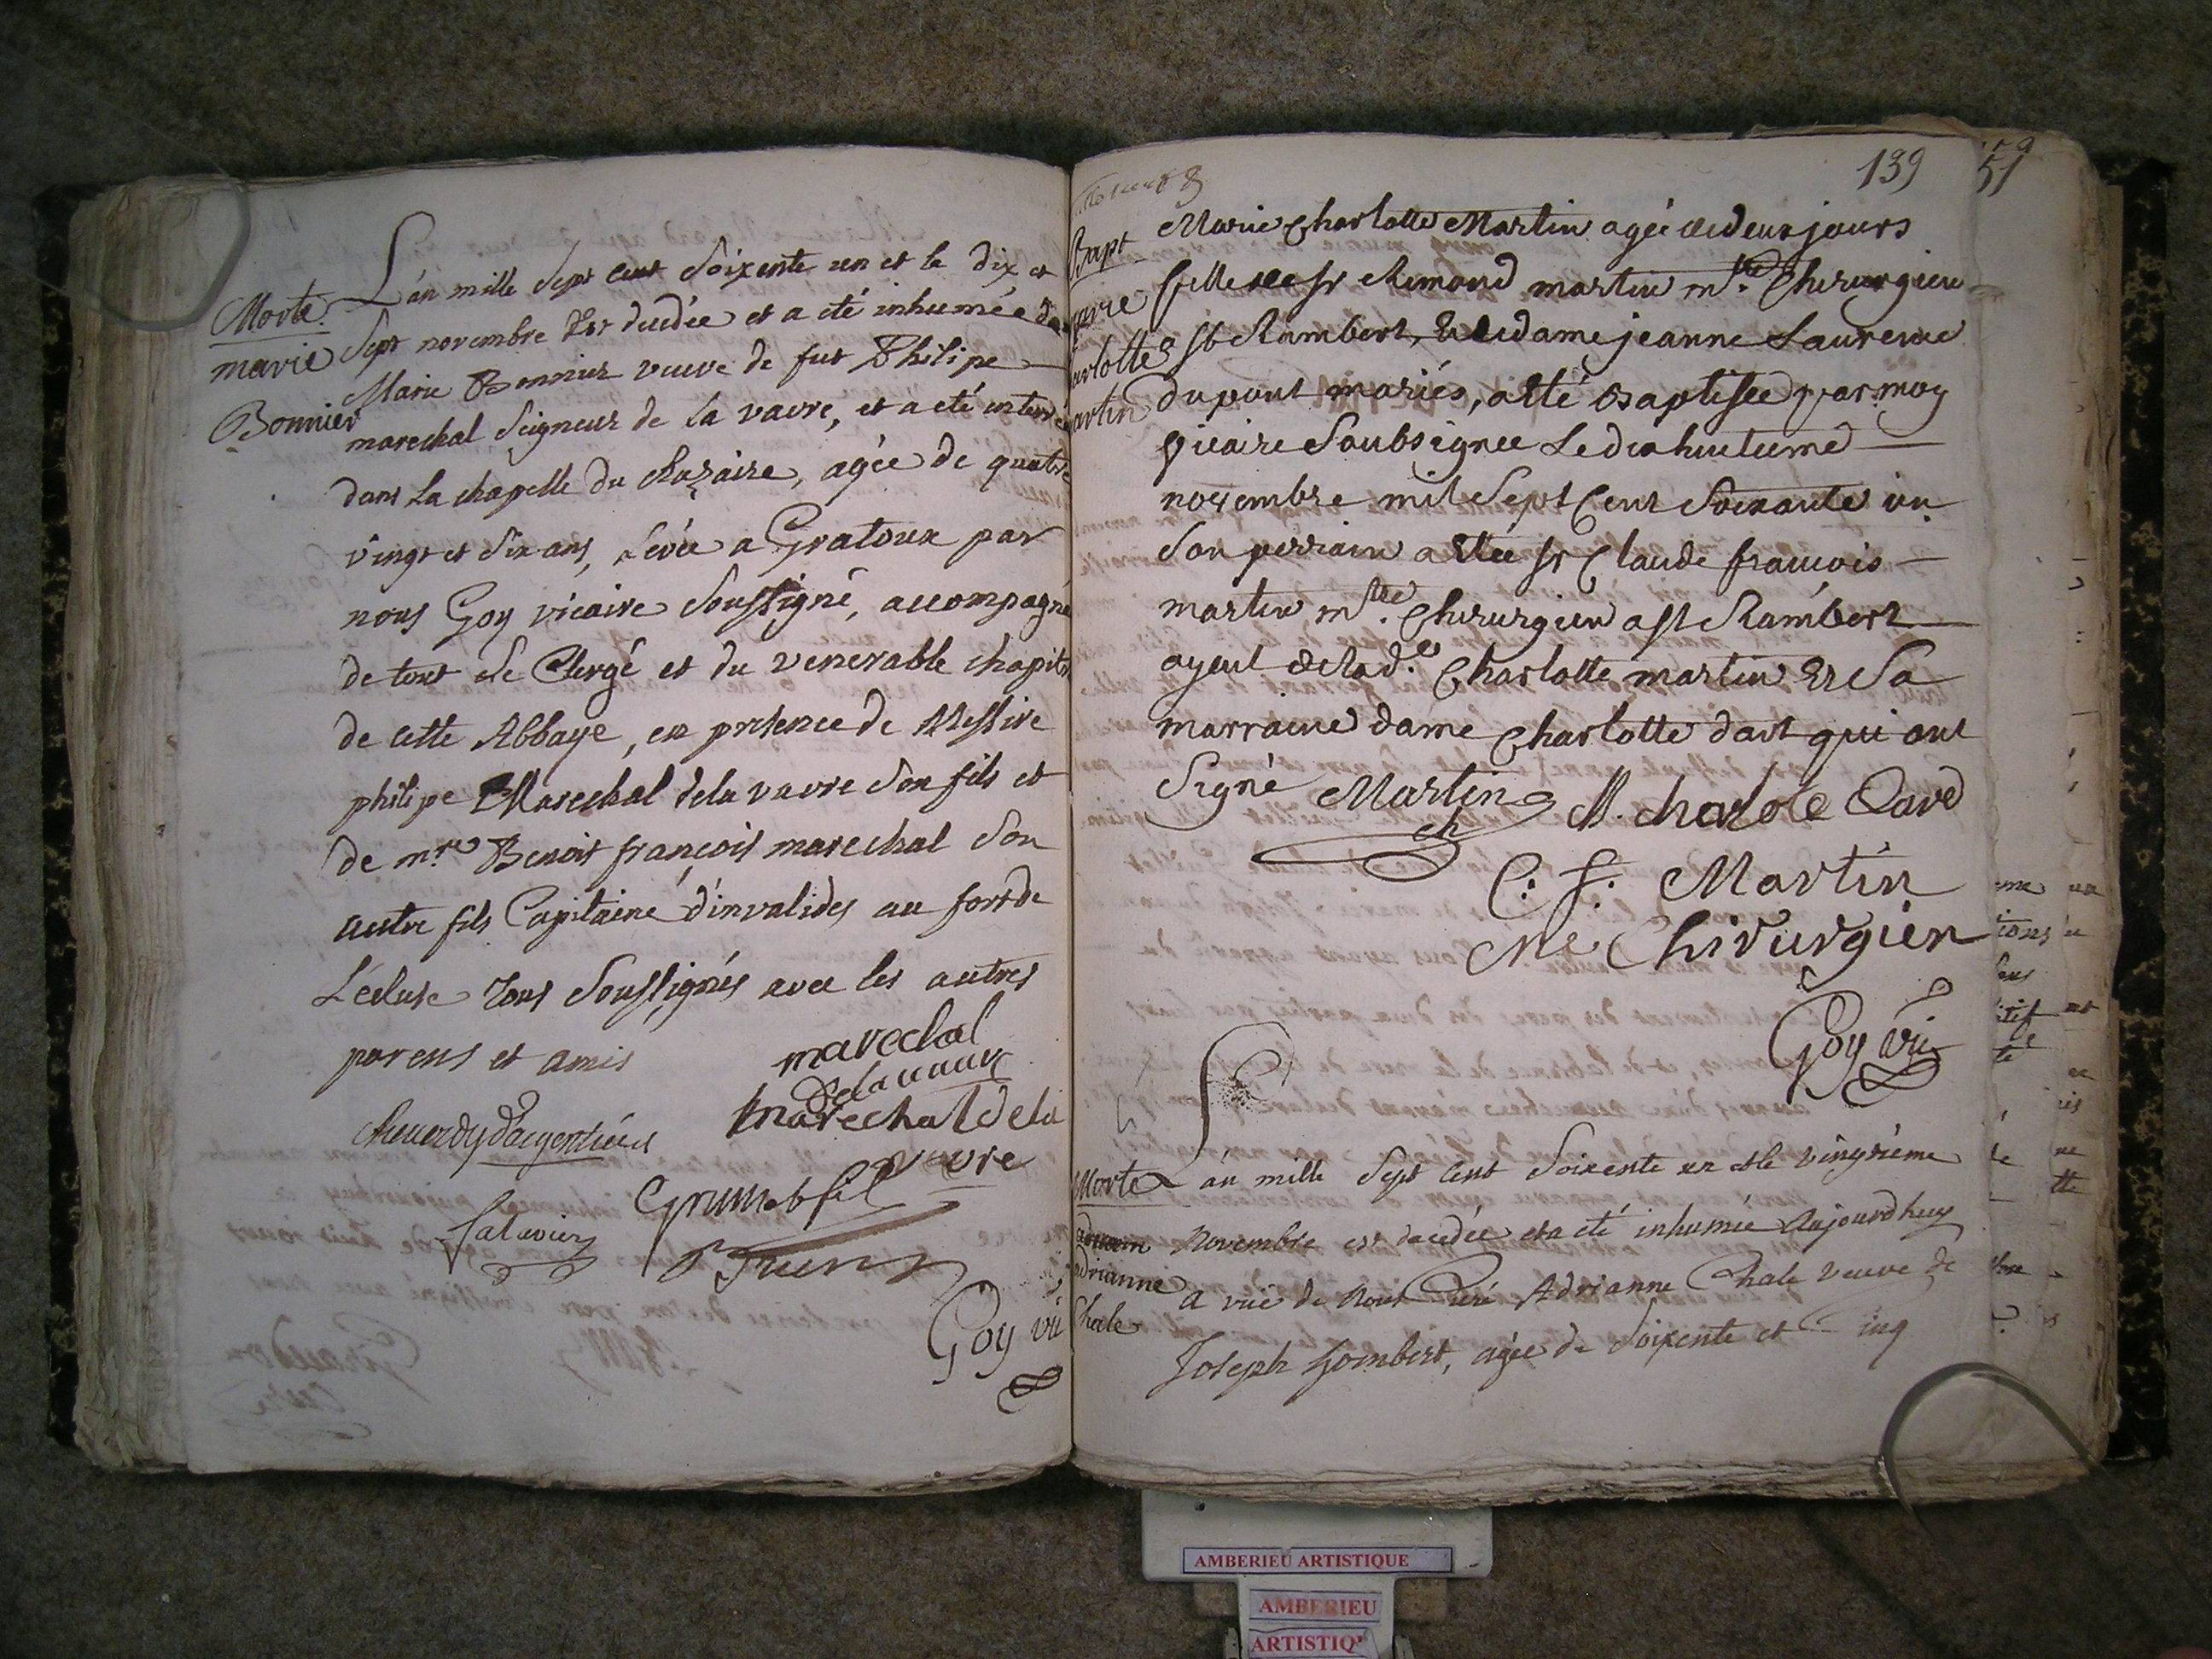 Morte.
marie
Bonnier
L'an mille Sept cent Soixente un et le dix et
Sept novembre Est decedée et a eté inhumée
Marie Bonnier veuve de fut Philipe
marechal Seigneur de la vavre, et a eté enterrée
dans la chapelle du Rozaire, agée de quatre
vingt et Six ans, Levée a Gratoux par
nous Goy vicaire Soussigné, accompagné
de tout le Clergé et du venerable chapitre
de cette Abbaye, en presence de Messire
philipe Marechal dela vavre Son fils et
de mre Benoit françois marechal Son
autre fils Capitaine d'invalides au fort de
L'ecluse tous Soussignés avec les autres
parens et amis
marechal
Delavavre
marechal de la
vavre
Grumet fil
Goy vic
139
51
Bapt
marie
Charlotte
martin
Marie Charlotte Martin agée de deux jours
fille de Sr Rémond martin mtre Chirurgien
a St Rambert, Et de dame jeanne Laurence
dupont mariés, a eté Baptisée par moy
vicaire Soubsignee Le dix huitieme
novembre mil Sept Cent Soixante un
Son perrain a Etée Sr Claude françois
martin mtre Chirurgien a St Rambert
ayeul de lad.e Charlotte martin Et Sa
marraine dame Charlotte dart qui ont
Signé Martin ch M. charlote
C. f. Martin
Me Chirurgien
Goy vic
Morte
adrianne
Chale
L'an mille Sept Cent Soixente un et le vingtième
Novembre est decedée et a eté inhumée Aujourdhuy
a vie de Nous Curé Adrianne Chale veuve de
Joseph Gombert, agée de Soixente et Cinq
AMBERIEU ARTISTIQUE
AMBERIEU
ARTISTIQ